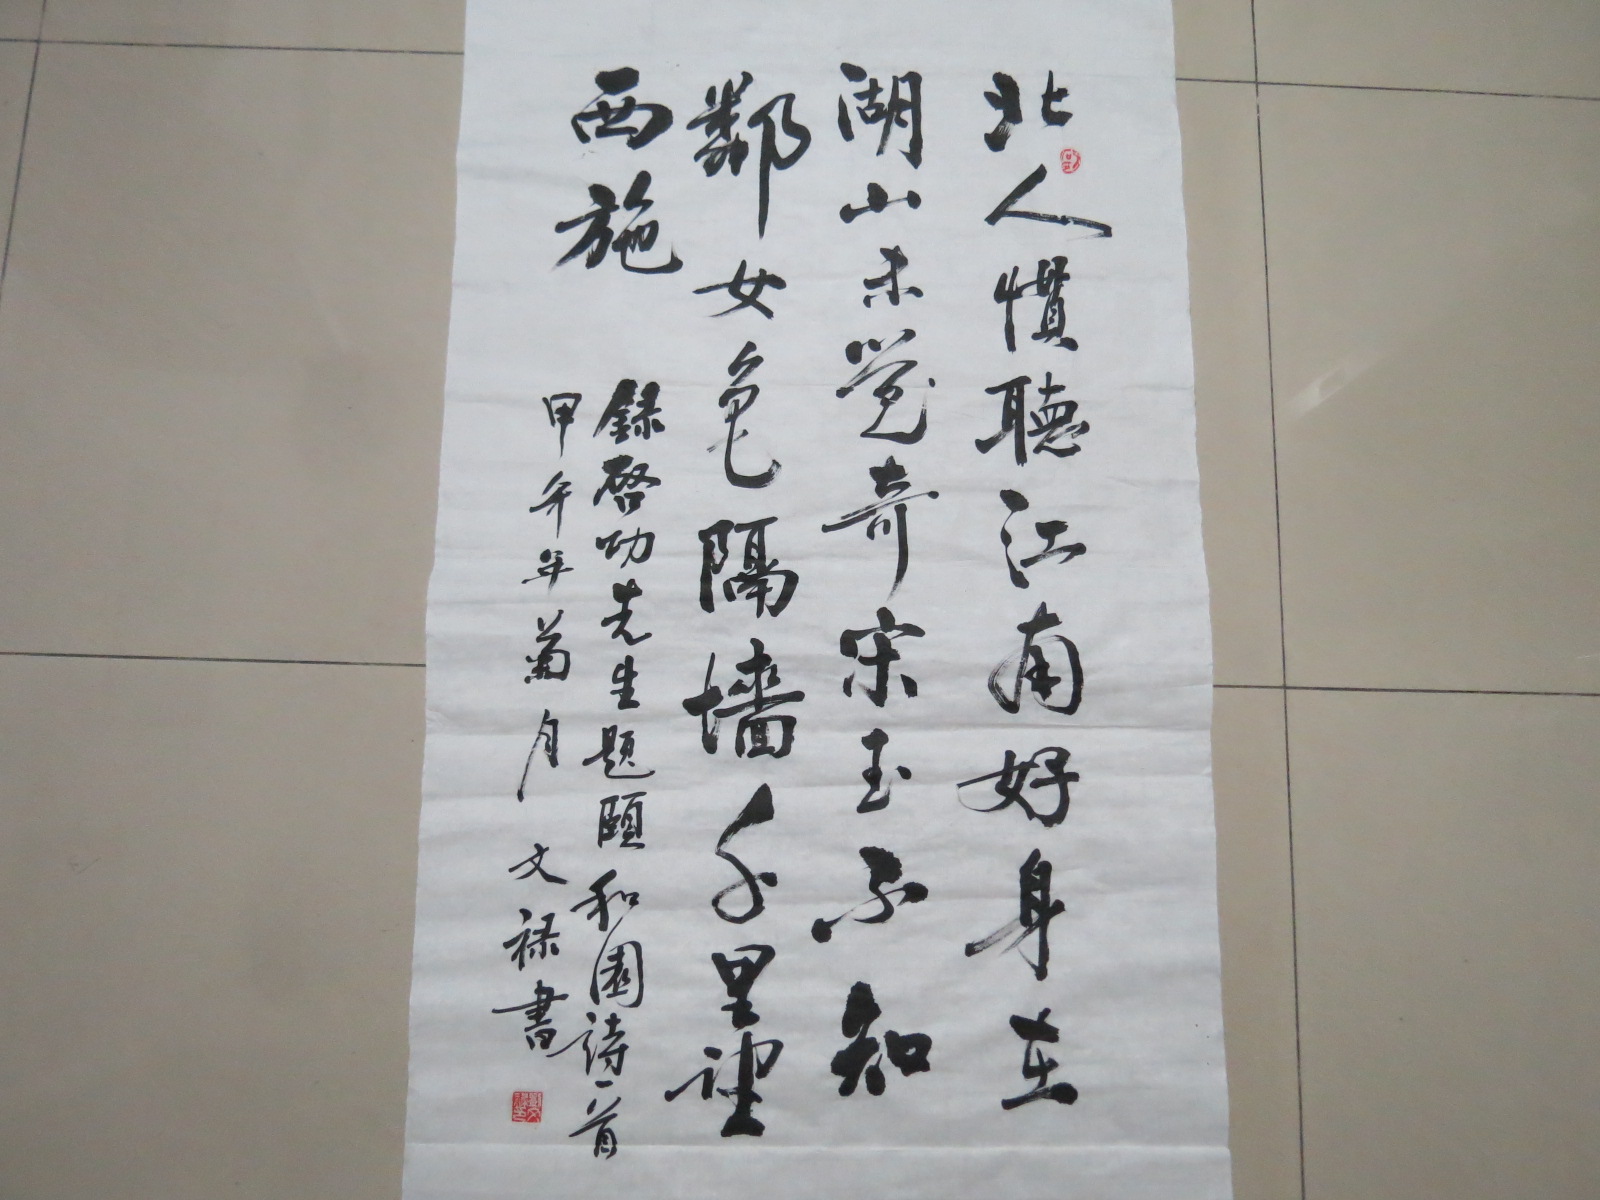 北人慣聽江南好身在
湖山未覺奇宋玉不知
鄰女色隔墻千里望
西施
錄啓功先生題頤和園詩一首
甲午年菊月 文禄書